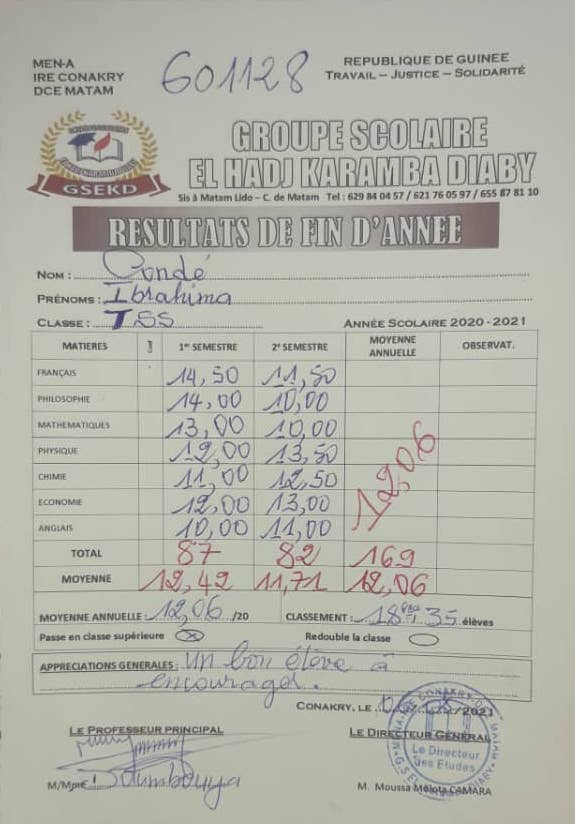 MEN-A
IRE CONAKRY
DCE MATAM
601128
REPUBLIQUE DE GUINEE
TRAVAIL – JUSTICE – SOLIDARITÉ
GSEKD
GROUPE SCOLAIRE
EL HADJ KARAMBA DIABY
Sis à Matam Lido – C. de Matam Tel : 629 84 04 57 / 621 76 05 97 / 655 87 81 10
RESULTATS DE FIN D'ANNEE
NOM : Condé
PRÉNOMS : Ibrahima
CLASSE : TSS ANNÉE SCOLAIRE 2020 - 2021
MATIERES 1er SEMESTRE 2e SEMESTRE MOYENNE ANNUELLE OBSERVAT.
FRANÇAIS 14,50 11,50
PHILOSOPHIE 14,00 10,00
MATHEMATIQUES 13,00 10,00
PHYSIQUE 12,00 13,50
CHIMIE 11,00 12,50
ECONOMIE 12,00 13,00
ANGLAIS 10,00 11,00
12,06
TOTAL 87 82 169
MOYENNE 12,42 11,71 12,06
MOYENNE ANNUELLE : 12,06 /20 CLASSEMENT : 18ème/35 élèves
Passe en classe supérieure X Redouble la classe
APPRECIATIONS GENERALES : Un bon élève à
encourager.
CONAKRY, LE 2021
LE PROFESSEUR PRINCIPAL LE DIRECTEUR GÉNÉRAL
Le Directeur
des Etudes
M/Mme Soumbouya
M. Moussa Molota CAMARA